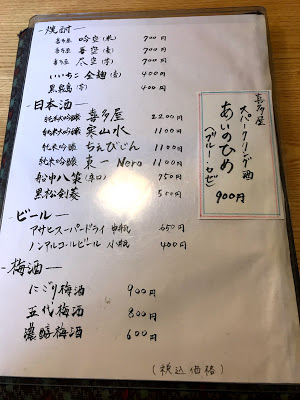 -焼酎-
喜多屋 吟空(米) 700円
喜多屋 吾空(麦) 700円
喜多屋 尽空(芋) 700円
いいちこ 全麹(麦) 400円
黒霧島(芋) 400円
-日本酒-
純米大吟醸 喜多屋 2200円
純米大吟醸 寒山水 1100円
純米吟醸 ちえびじん 1100円
純米大吟醸 東一 Nero 1100円
船中八策(辛口) 750円
黒松剣菱 500円
-ビール-
アサヒスーパードライ 中瓶 650円
ノンアルコールビール 小瓶 400円
-梅酒-
にごり梅酒 900円
五代梅酒 800円
濃醇梅酒 600円
(税込価格)
喜多屋
スパークリング酒
あいのひめ
(ブルー・ロゼ)
900円